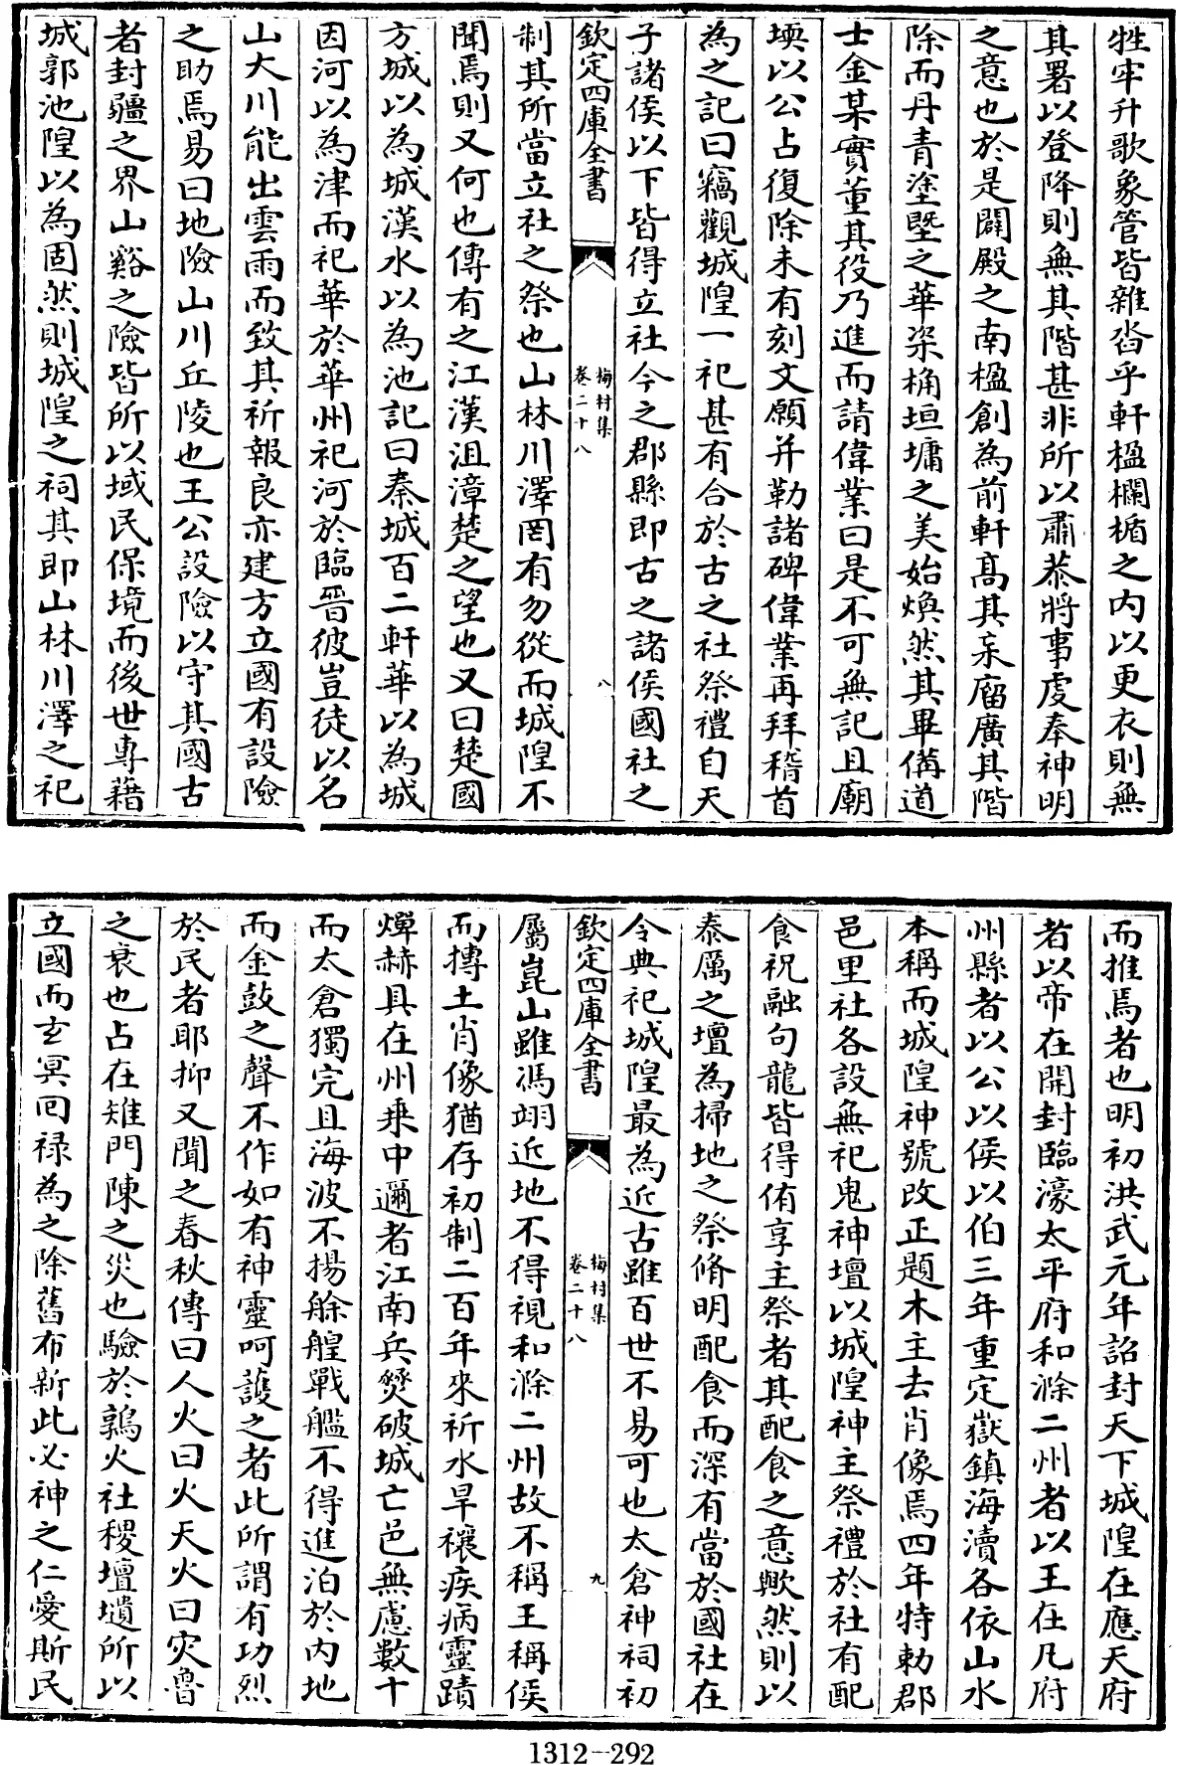 牲牢升歌象管皆雜沓乎軒楹欄楯之內以更衣則無
其署以登降則無其階甚非所以肅恭將事虔奉神明
之意也於是闢殿之南楹創為前軒髙其亲廇廣其階
除而丹青塗塈之華桼桷垣墉之美始煥然其畢備道
士金某實董其役乃進而請偉業曰是不可無記且廟
堧以公占復除未有刻文願并勒諸碑偉業再拜稽首
為之記曰竊觀城隍一祀甚有合於古之社祭禮自天
子諸侯以下皆得立社今之郡縣即古之諸侯國社之
欽定四庫全書
梅村集
卷二十八
八
制其所當立社之祭也山林川澤罔有勿從而城隍不
聞焉則又何也傳有之江漢沮漳楚之望也又曰楚國
方城以為城漢水以為池記曰秦城百二軒華以為城
因河以為津而祀華於華州祀河於臨晉彼豈徒以名
山大川能出雲雨而致其祈報良亦建方立國有設險
之助焉易曰地險山川丘陵也王公設險以守其國古
者封疆之界山谿之險皆所以域民保境而後世專藉
城郭池隍以為固然則城隍之祠其即山林川澤之祀
而推焉者也明初洪武元年詔封天下城隍在應天府
者以帝在開封臨濠太平府和滁二州者以王在凡府
州縣者以公以侯以伯三年重定嶽鎮海瀆各依山水
本稱而城隍神號改正題木主去肖像焉四年特勅郡
邑里社各設無祀鬼神壇以城隍神主祭禮於社有配
食祝融句龍皆得侑享主祭者其配食之意歟然則以
泰厲之壇為掃地之祭脩明配食而深有當於國社在
令典祀城隍最為近古雖百世不易可也太倉神祠初
欽定四庫全書
梅村集
卷二十八
九
屬崑山雖馮翊近地不得視和滁二州故不稱王稱侯
而摶土肖像猶存初制二百年來祈水旱禳疾病靈蹟
燀赫具在州乗中邇者江南兵燹破城亡邑無慮數十
而太倉獨完且海波不揚艅艎戰艦不得進泊於內地
而金鼓之聲不作如有神靈呵護之者此所謂有功烈
於民者耶抑又聞之春秋傳曰人火曰火天火曰灾魯
之衰也占在雉門陳之災也驗於鶉火社稷壇壝所以
立國而玄冥囘祿為之除舊布新此必神之仁愛斯民
1312-292